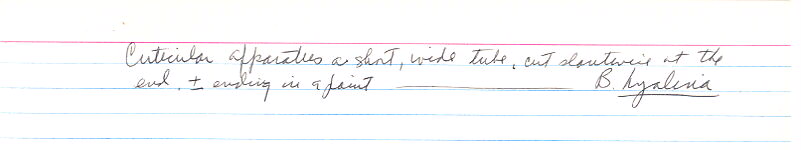 Cuticular apparatus a short, wide tube, cut slantwise at the
end, ± ending in a point ———————— B. hyalina